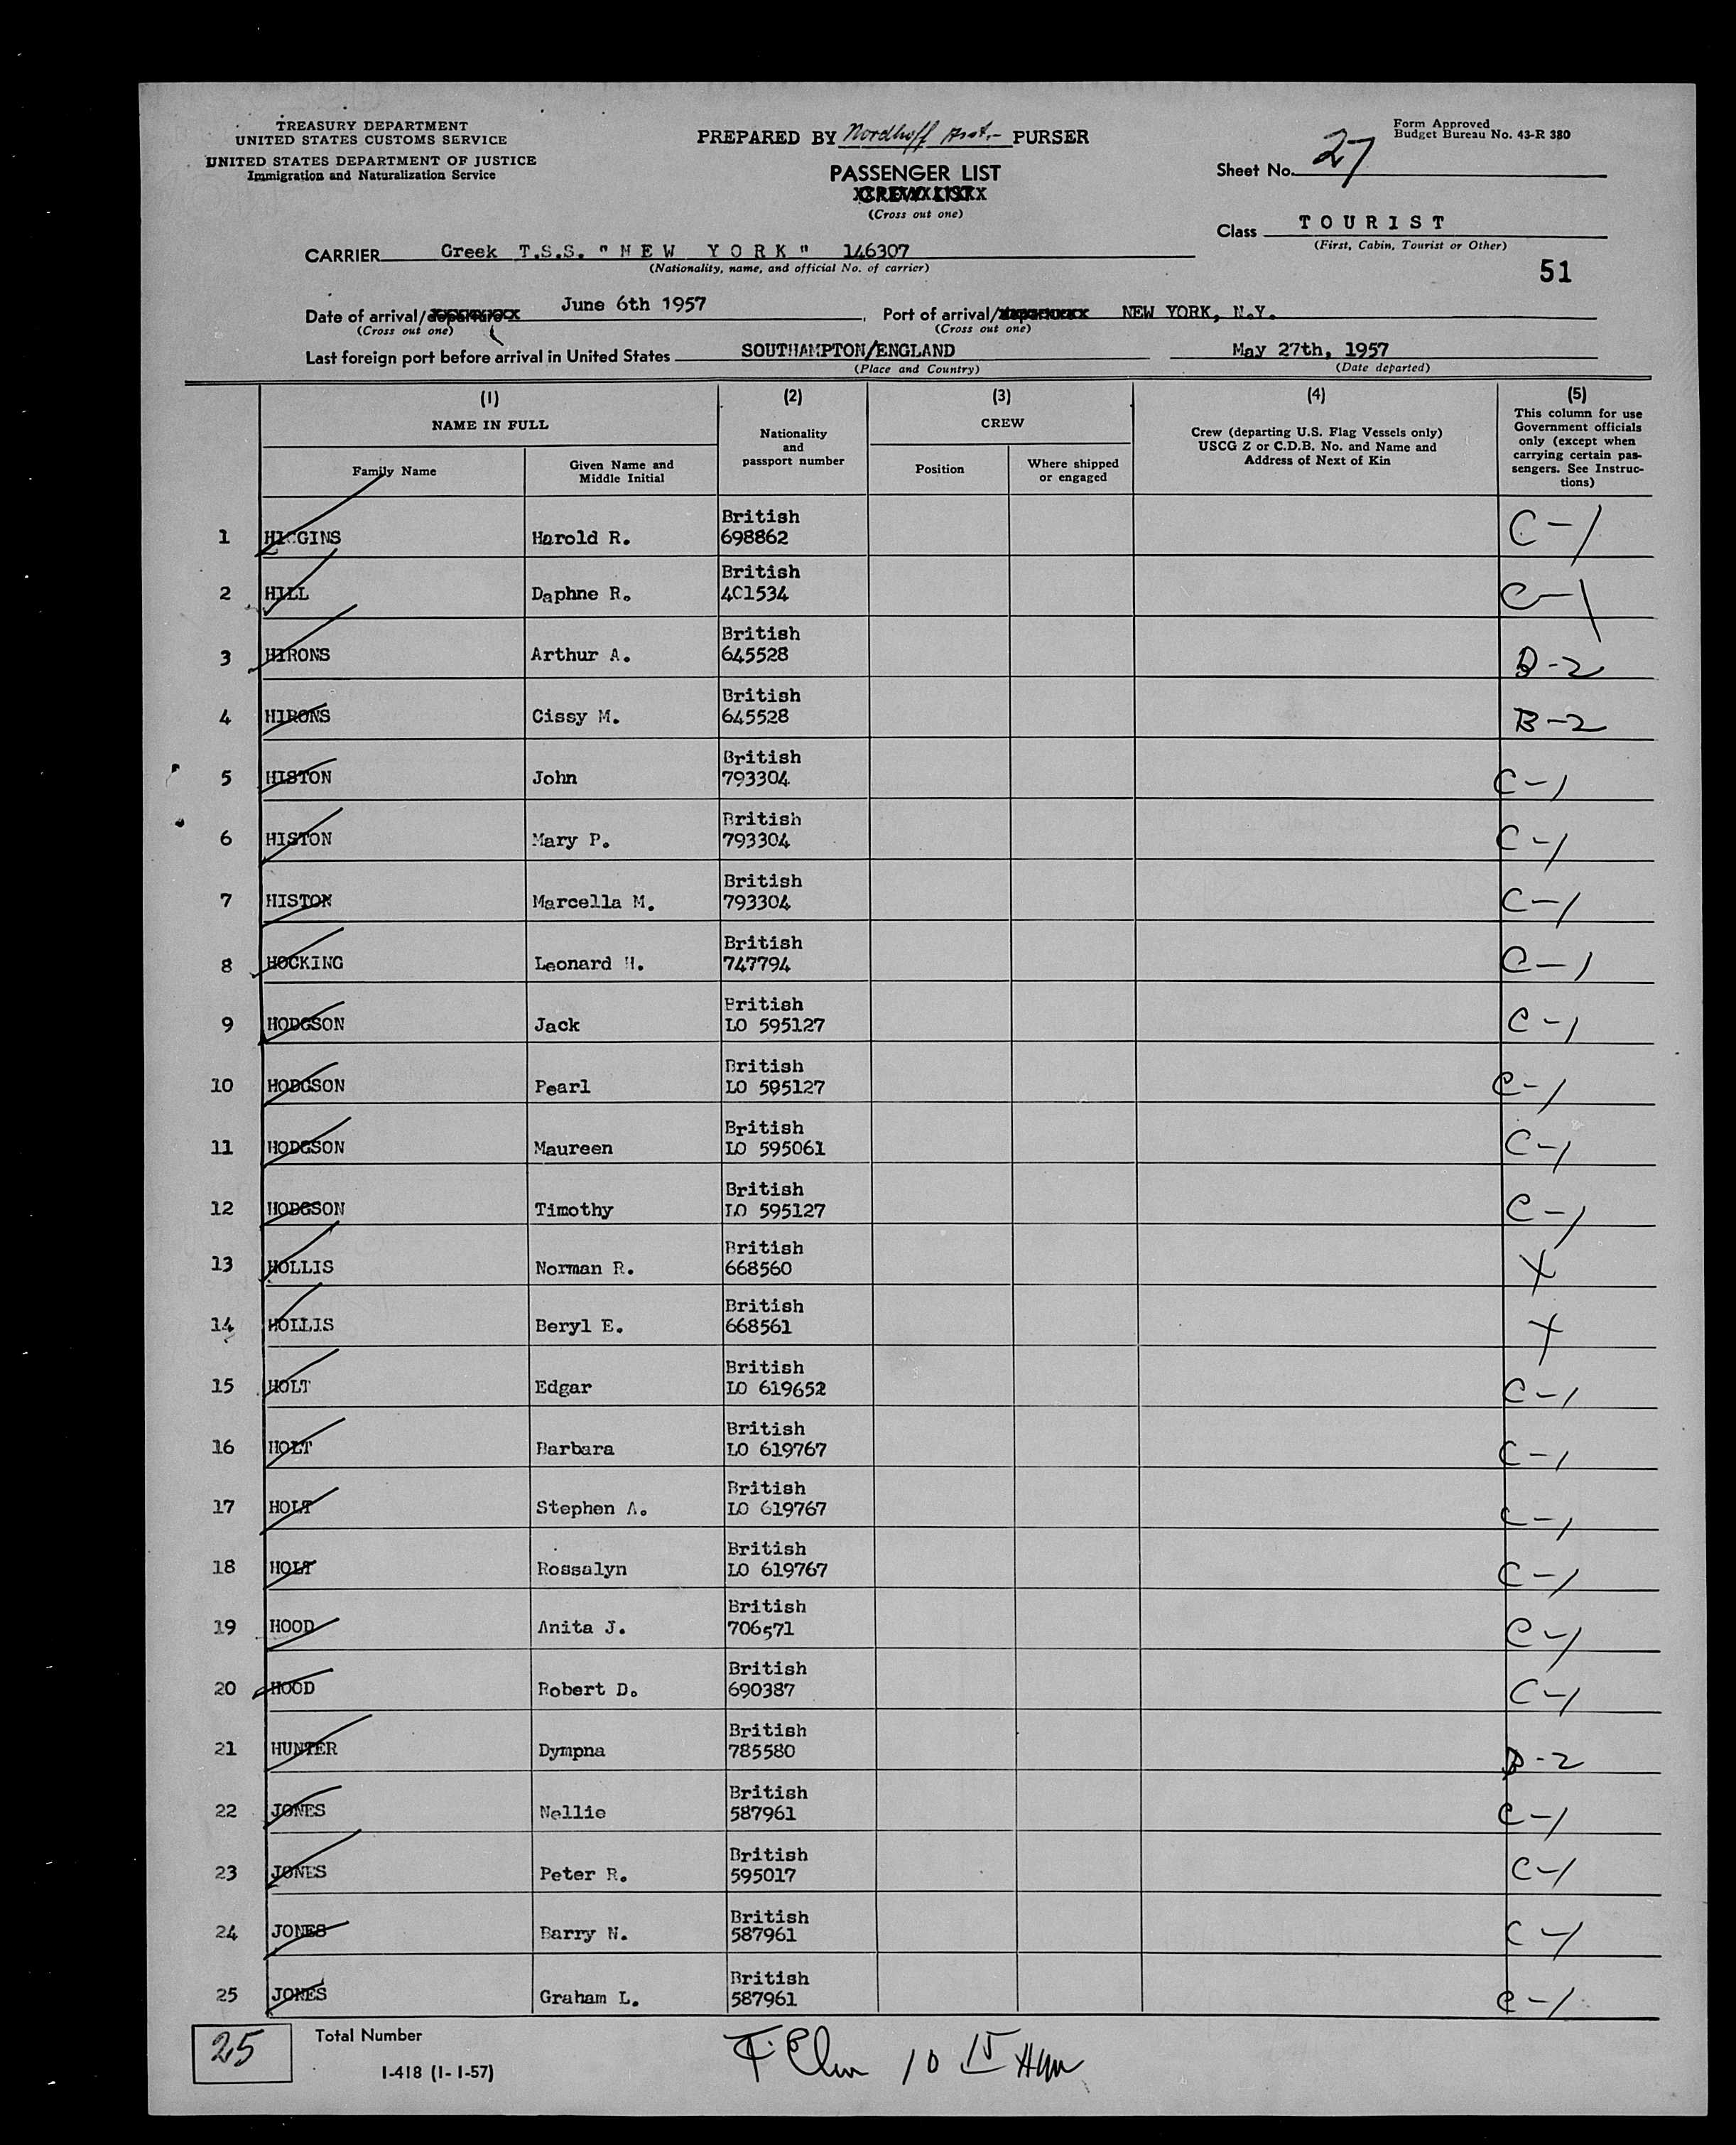 TREASURY DEPARTMENT
UNITED STATES CUSTOMS SERVICE
UNITED STATES DEPARTMENT OF JUSTICE
Immigration and Naturalization Service
PREPARED BY Nordhoff Asst.- PURSER
PASSENGER LIST
CREW LIST
(Cross out one)
Form Approved
Budget Bureau No. 43-R 380
Sheet No. 27
Class TOURIST
(First, Cabin, Tourist or Other)
51
CARRIER Greek T.S.S. "NEW YORK" 146307
(Nationality, name, and official No. of carrier)
Date of arrival/departure June 6th 1957, Port of arrival/departure NEW YORK, N.Y.
(Cross out one) (Cross out one)
Last foreign port before arrival in United States SOUTHAMPTON/ENGLAND May 27th, 1957
(Place and Country) (Date departed)
(1) NAME IN FULL
Family Name
Given Name and Middle Initial
(2) Nationality and passport number
(3) CREW
Position
Where shipped or engaged
(4) Crew (departing U.S. Flag Vessels only) USCG Z or C.D.B. No. and Name and Address of Next of Kin
(5) This column for use Government officials only (except when carrying certain passengers. See Instructions)
1 HIGGINS Harold R. British 698862 C-1
2 HILL Daphne R. British 4C1534 C-1
3 HIRONS Arthur A. British 645528 B-2
4 HIRONS Cissy M. British 645528 B-2
5 HISTON John British 793304 C-1
6 HISTON Mary P. British 793304 C-1
7 HISTON Marcella M. British 793304 C-1
8 HOCKING Leonard H. British 747794 C-1
9 HODGSON Jack British LO 595127 C-1
10 HODGSON Pearl British LO 595127 C-1
11 HODGSON Maureen British LO 595061 C-1
12 HODGSON Timothy British LO 595127 C-1
13 HOLLIS Norman R. British 668560 X
14 HOLLIS Beryl E. British 668561 X
15 HOLT Edgar British LO 619652 C-1
16 HOLT Barbara British LO 619767 C-1
17 HOLT Stephen A. British LO 619767 C-1
18 HOLT Rossalyn British LO 619767 C-1
19 HOOD Anita J. British 706571 C-1
20 HOOD Robert D. British 690387 C-1
21 HUNTER Dympna British 785580 B-2
22 JONES Nellie British 587961 C-1
23 JONES Peter R. British 595017 C-1
24 JONES Barry N. British 587961 C-1
25 JONES Graham L. British 587961 C-1
25 Total Number
I-418 (1-1-57)
10 15